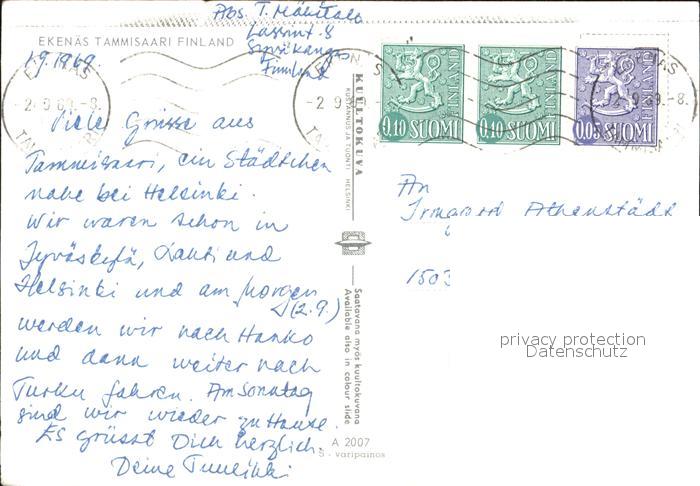 Abs. T. Mäkitalo
Lassint. 8
Finnland
EKENÄS TAMMISAARI FINLAND
1.9.1969.
Viele Grüsse aus
Tammisaari, ein Städtchen
nahe bei Helsinki.
Wir waren schon in
Jyväskylä, Lahti und
Helsinki und am Morgen
(2.9.)
werden wir nach Hanko
und dann weiter nach
Turku fahren. Am Sonntag
sind wir wieder zu Hause.
Es grüsst Dich herzlich.
Deine Tuulikki
KUULTOKUVA
KUSTANNUS JA TUONTI HELSINKI
Saatavana myös kuultokuvana
Available also in colour slide
A 2007
S - varipainos
EKENÄS
-2.-9.69.-8.
-2.9.
-2.9.69.-8.
0.10 SUOMI
FINLAND
0.10 SUOMI
FINLAND
0.05 SUOMI
FINLAND
An
Irmgard Athenstädt
1503
privacy protection
Datenschutz